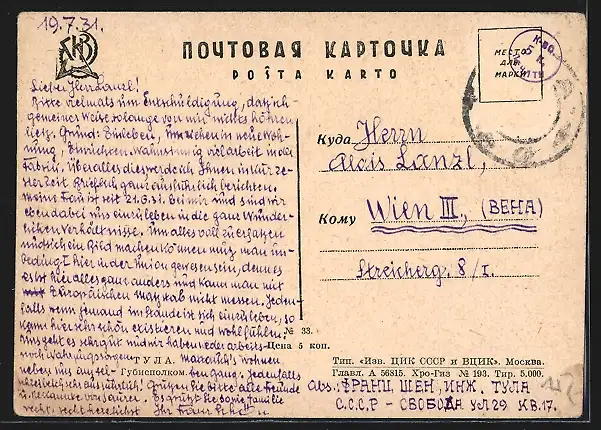 19.7.31.
ПОЧТОВАЯ КАРТОЧКА
POŜTA KARTO
МЕСТО
ДЛЯ
МАРКИ
Lieber Herr Lanzl!
Bitte vielmals um Entschuldigung, daß ich
gemeiner Weise so lange von mir nichts hören
ließ. Grund: Einleben, Umziehen in neue Woh-
nung, Einrichten. Wahnsinnig viel Arbeit in der
Fabrik. Über alles dies werde ich Ihnen in kürze-
ster Zeit brieflich ganz ausführlich berichten.
Meine Frau ist seit 21.6.31. bei mir und sind wir
eben dabei uns einzuleben in die ganz wunder-
lichen Verhältnisse. Um alles voll zu erfassen
und sich ein Bild machen können muß man un-
bedingt hier in der Union gewesen sein, denn es
ist hier alles ganz anders und kann man mit
Europäischen Maßstab nicht messen. Jeden-
falls wenn jemand imstande ist sich einzuleben, so
kann hier sehr schön existieren und wohlfühlen.
Uns geht es sehr gut und wir haben weder Arbeits-
noch Wohnungssorgen. wohnen
neben uns Jedenfalls
Grüßen Sie bitte alle Freunde
und Bekannte von Es grüßt Sie samt Familie
recht, recht herzlichst Ihr Franz
Куда
Herrn
Alois Lanzl,
Кому
Wien III., (ВЕНА)
Streicherg. 8/I.
№ 33.
Цена 5 коп.
ТУЛА.
Губисполком.
Тип. «Изв. ЦИК СССР и ВЦИК». Москва.
Главл. А 56815. Хро-Гиз № 193. Тир. 5.000.
Abs. ФРАНЦ ШЕН, ИНЖ. ТУЛА
С.С.С.Р - СВОБОДА УЛ 29 КВ.17.